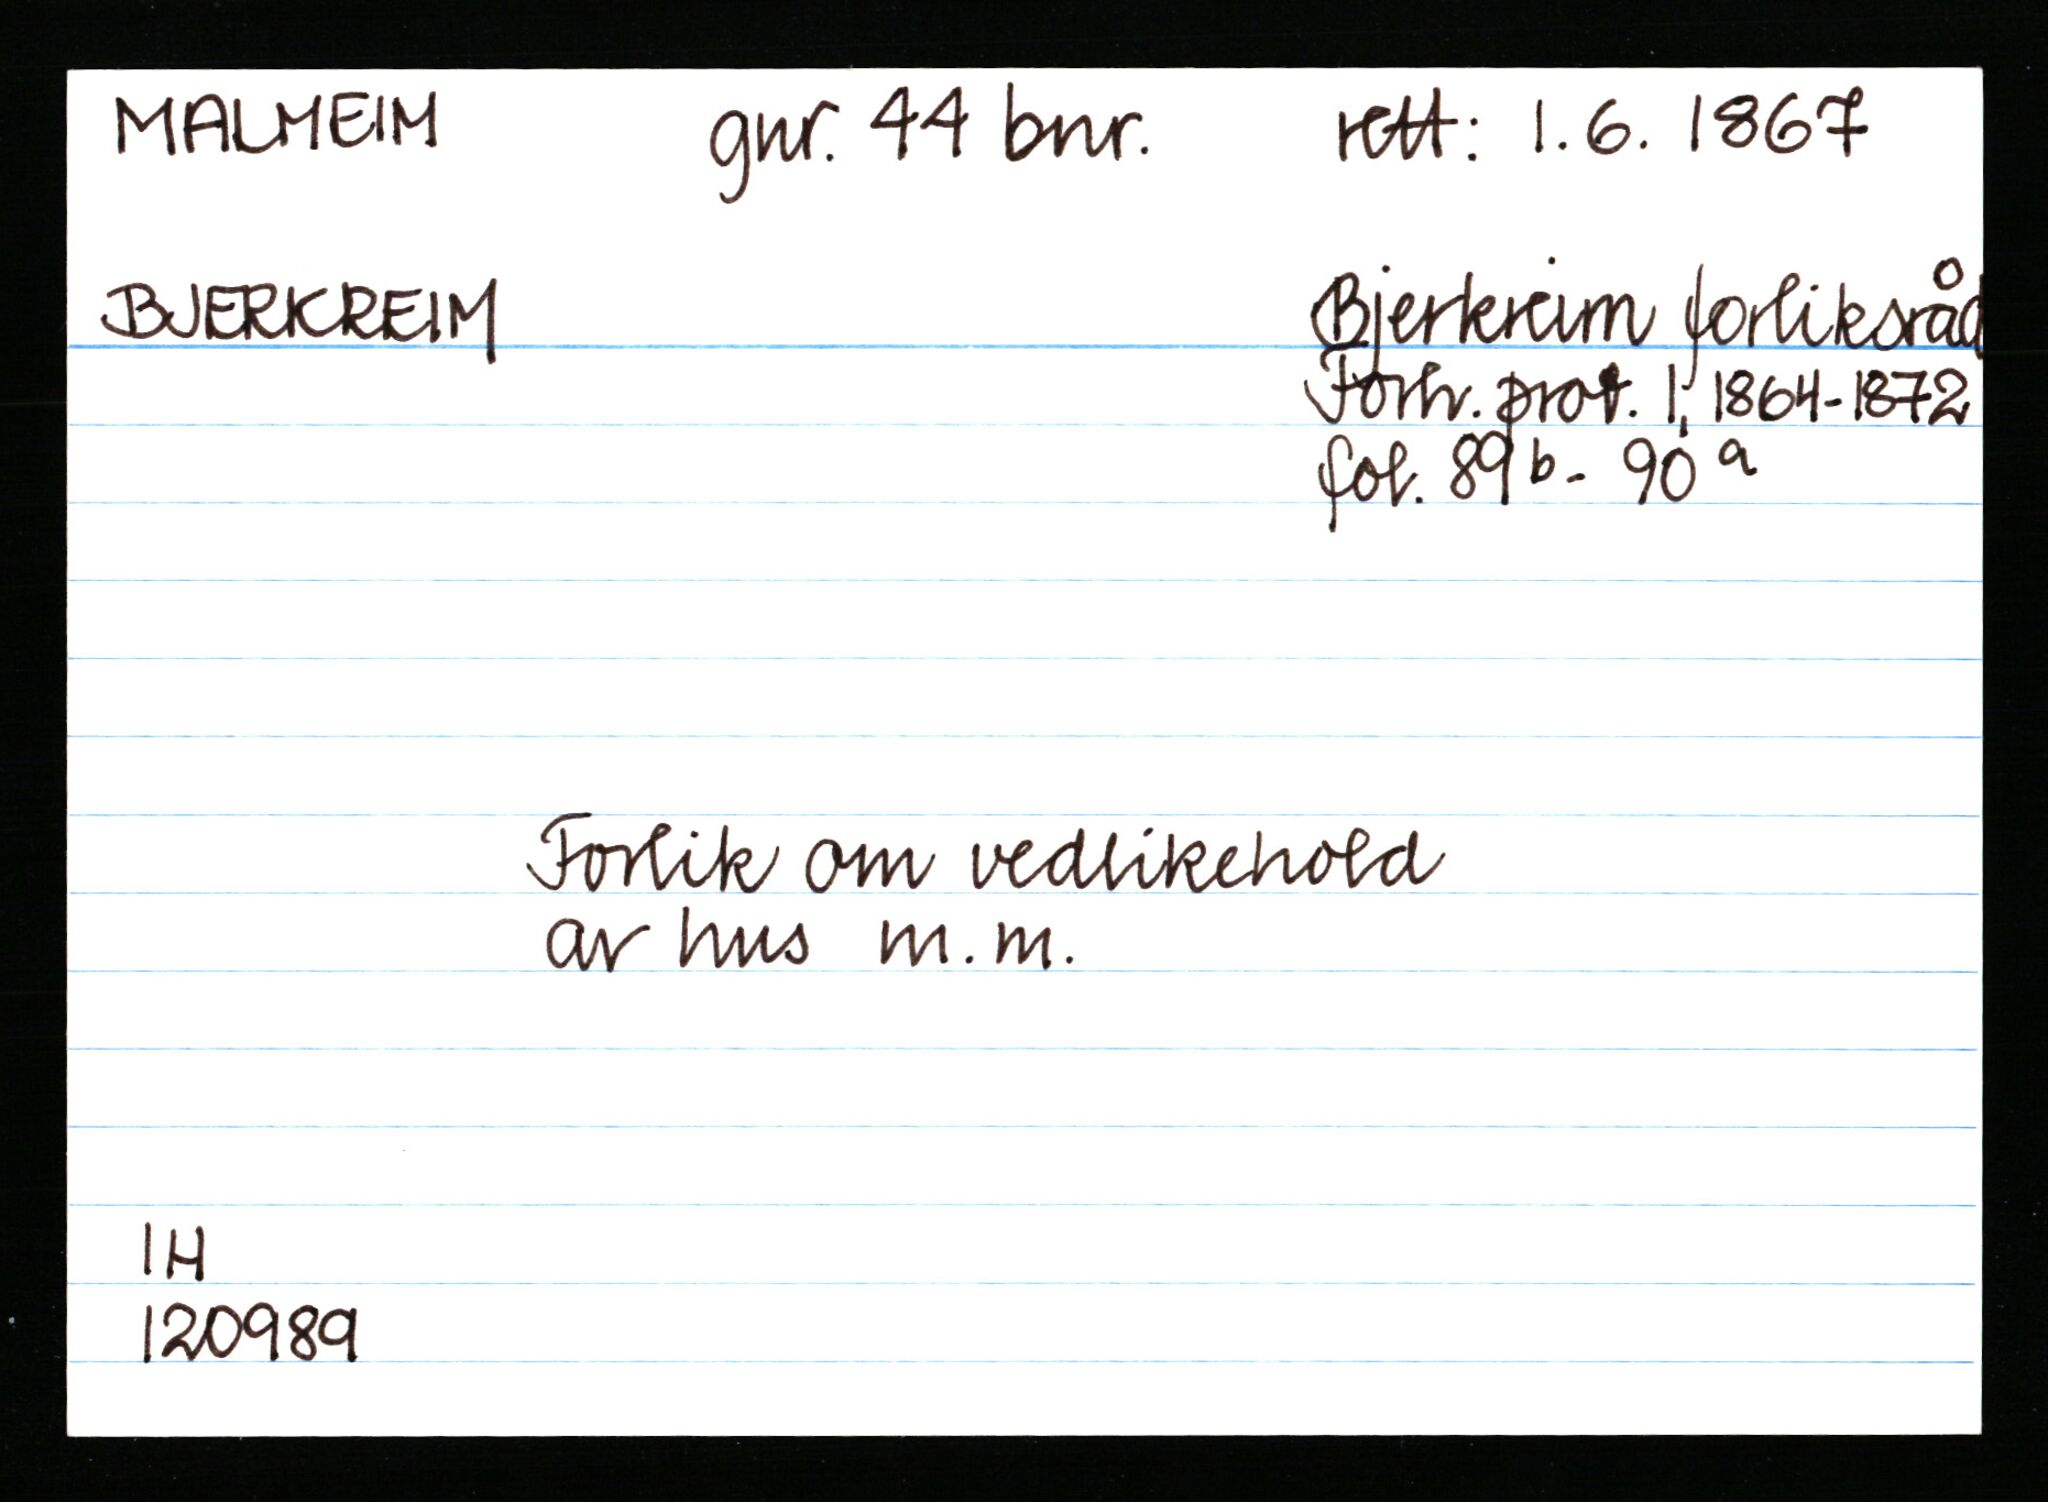 MALMEIM gnr. 44 bnr. rett: 1.6.1867
BJERKREIM Bjerkreim forliksråd
Forh. prot. 1, 1864-1872
fol. 89b - 90a
Forlik om vedlikehold
av hus m.m.
IH
120989